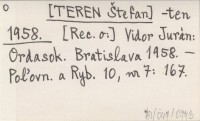 [TEREN Štefan] -ten
1958. [Rec. o:] Vidor Jurán:
Ordasok. Bratislava 1958. —
Poľovn. a Ryb. 10, nr 7: 167.